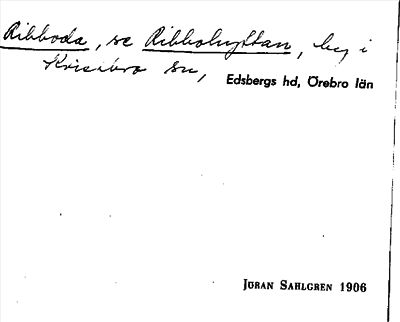 Ribboda, se Ribbohyttan, by i
Knista sn, Edsbergs hd, Örebro län
JÖRAN SAHLGREN 1906